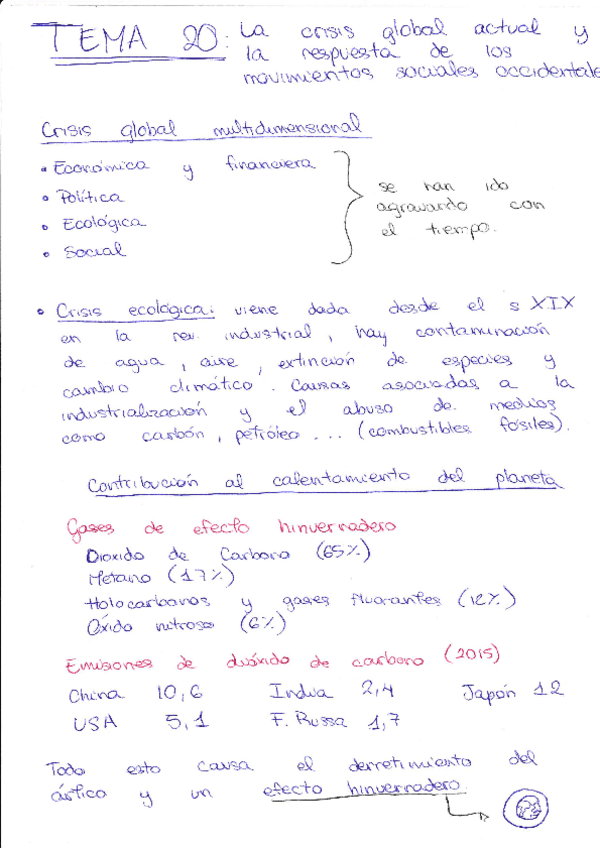 TEMA 20: La crisis global actual y
la respuesta de los
movimientos sociales occidentale
Crisis global multidimensional
• Económica y financiera
• Política
• Ecológica
• Social
se han ido
agravando con
el tiempo.
• Crisis ecológica: viene dada desde el s XIX
en la rev. industrial, hay contaminación
de agua, aire, extinción de especies y
cambio climático. Causas asociadas a la
industrialización y el abuso de medios
como carbón, petróleo... (combustibles fósiles).
Contribución al calentamiento del planeta
Gases de efecto hinvernadero
Dioxido de Carbono (65%)
Metano (17%)
Holocarbonos y gases fluorantes (12%)
Óxido nitroso (6%)
Emisiones de dióxido de carbono (2015)
China 10,6 India 2,4 Japón 12
USA 5,1 F. Russa 1,7
Todo esto causa el derretimiento del
ártico y un efecto hinvernadero.